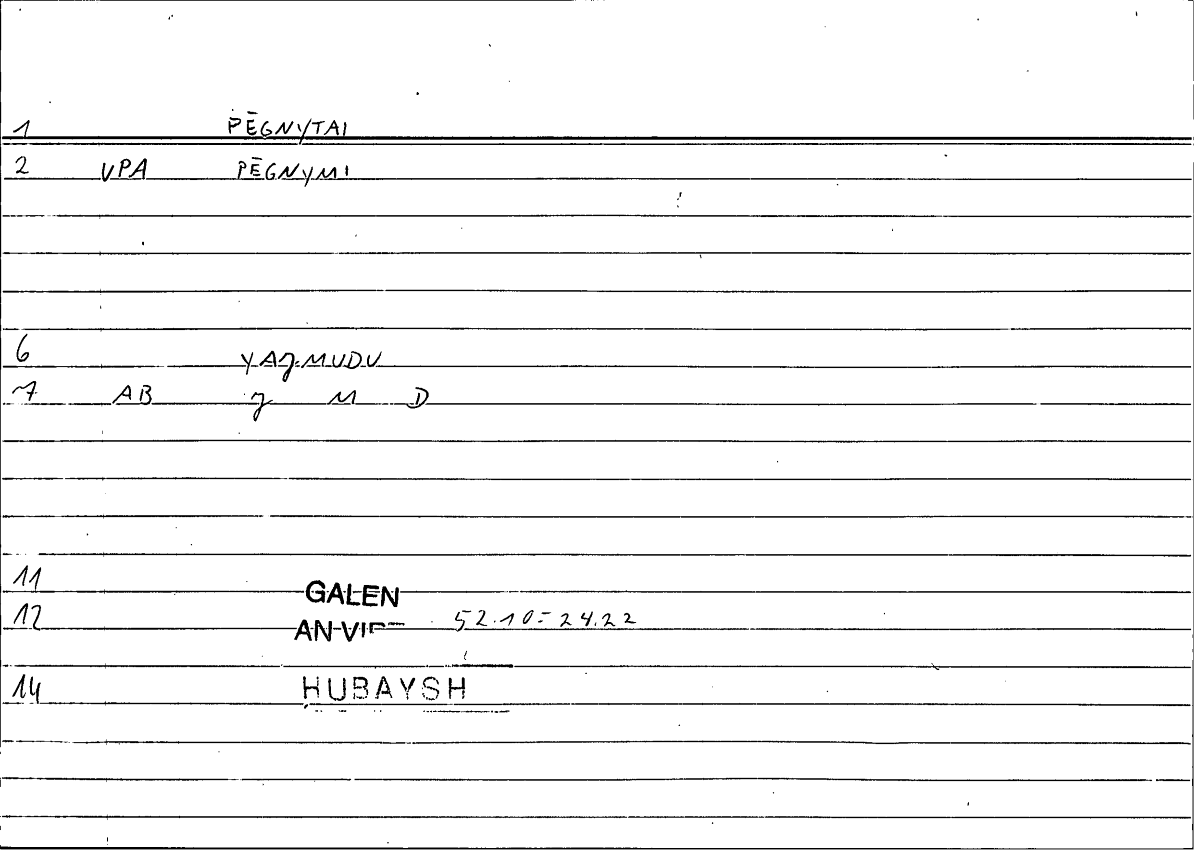 1 PĒGNYTAI
2 VPA PĒGNYMI
6 YAJMUDU
7 AB J M D
11 GALEN
12 AN VIRT 52.10 = 24.22
14 ḤUBAYSH